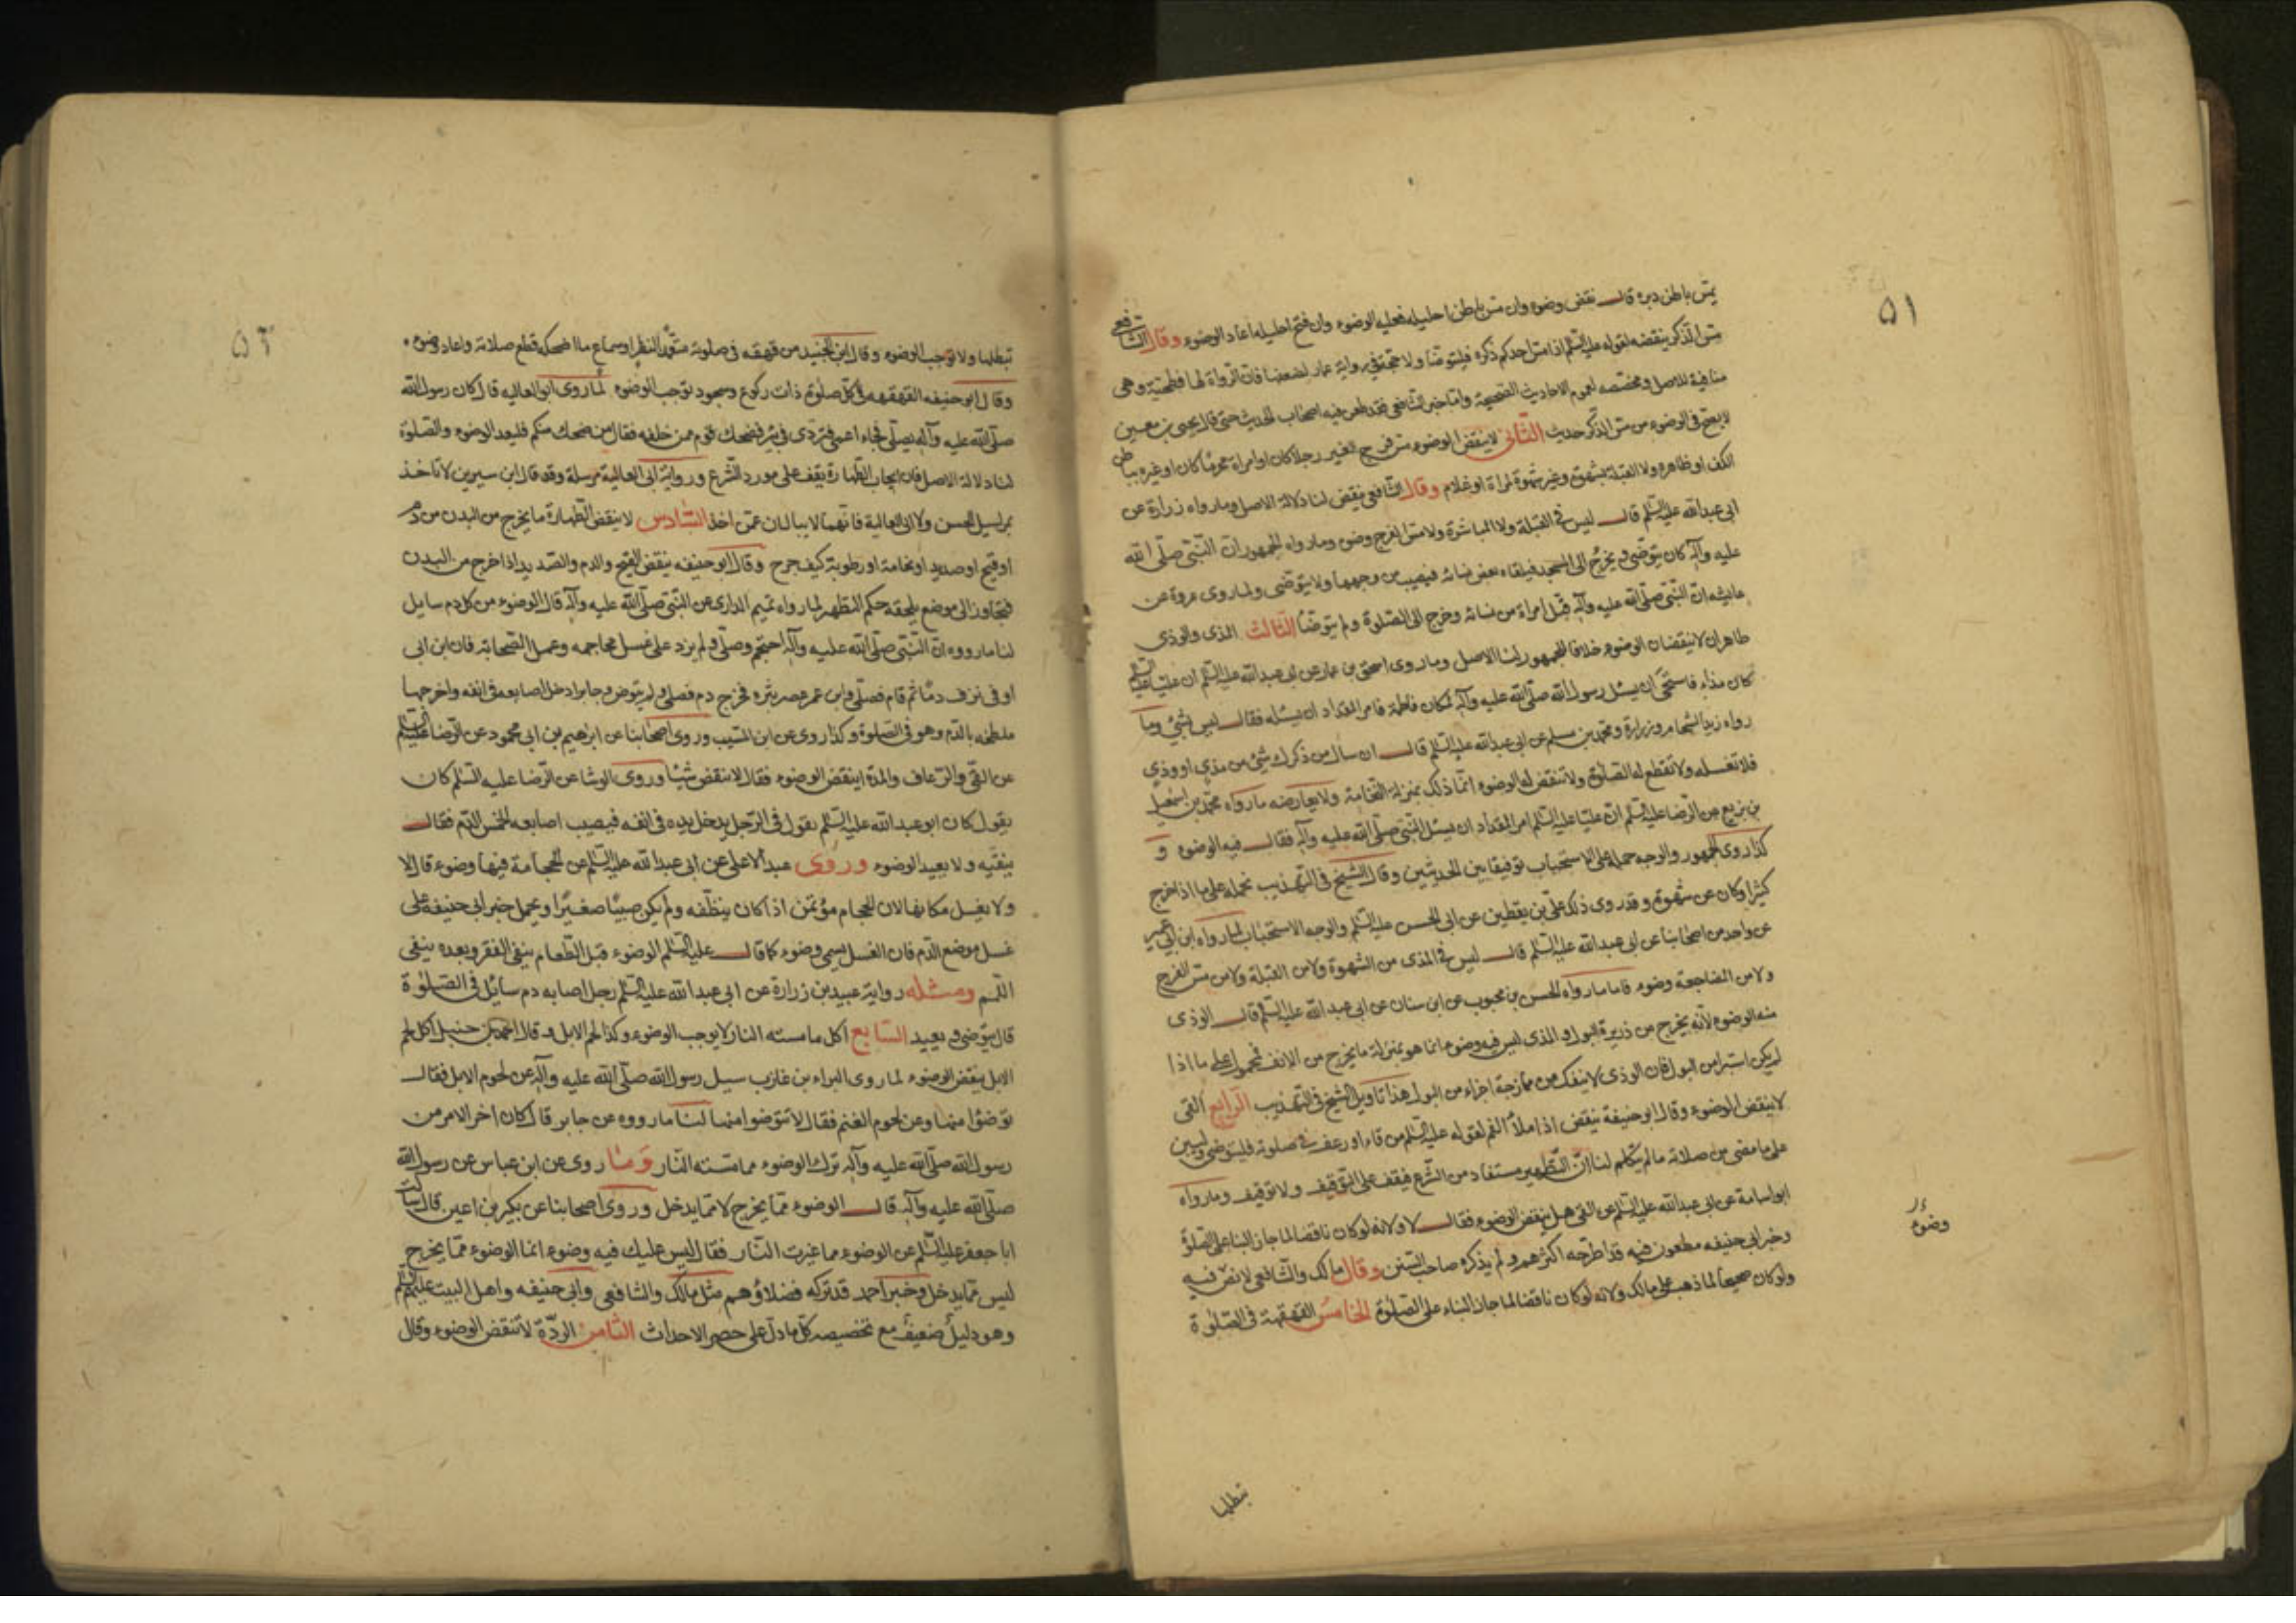 ٥١
يمس باطن دبره قال نقض وضوءه وان مس باطن احليله فعليه الوضوء وان فتح احليله اعاد الوضوء وقال الشافعي
مس الذكر ينقضه لقوله عليه السلم اذا مس احدكم ذكره فليتوضا ولا حجة في رواية عمار لضعفها فان الرواة لها فطحية وهى
منافية للاصل ومخصصه لعموم الاحاديث الصحيحة واما خبر الشافعي فقد طعن فيه اصحاب الحديث حتى قال يحيى بن معين
لا يصح في الوضوء من مس الذكر حديث الثاني لا ينقض الوضوء مس فرج الغير رجلا كان او امراة محرما كان او غيره بباطن
الكف او ظاهره ولا القبلة بشهوة وغير شهوة لمراة او غلام وقال الشافعي ينقض لنا دلالة الاصل وما رواه زرارة عن
ابى عبد الله عليه السلم قال ليس في القبلة ولا المباشرة ولا مس الفرج وضوء وما رواه الجمهور ان النبى صلى الله
عليه وآله كان يتوضى ويخرج الى المسجد فيلقاه بعض نسائه فيصيب من وجهها ولا يتوضى ولما روى عروة عن
عايشه ان النبى صلى الله عليه وآله قبل امراة من نسائه وخرج الى الصلوة ولم يتوضا الثالث المذى والوذى
طاهران لا ينقضان الوضوء خلافا للجمهور لنا الاصل وما روى اسحق بن عمار عن ابى عبد الله عليه السلم ان عليا عليه السلم
كان مذاء فاستحى ان يسئل رسول الله صلى الله عليه وآله لمكان فاطمة فامر المقداد ان يسئله فقال ليس بشئ وما
رواه زيد الشحام وزرارة ومحمد بن مسلم عن ابى عبد الله عليه السلم قال ان سال من ذكرك شئ من مذي او وذي
فلا تغسله ولا تقطع له الصلوة ولا تنقض له الوضوء انما ذلك بمنزلة النخامة ولا يعارضه ما رواه محمد بن اسمعيل
بن بزيع عن الرضا عليه السلم ان عليا عليه السلم امر المقداد ان يسئل النبى صلى الله عليه وآله فقال فيه الوضوء و
كذا روى الجمهور والوجه حمله على الاستحباب توفيقا بين الحديثين وقال الشيخ في التهذيب نحمله على ما اذا خرج
كثيرا وكان عن شهوة وقد روى ذلك على بن يقطين عن ابى الحسن عليه السلم والوجه الاستحباب لما رواه ابن ابى عمير
عن واحد من اصحابنا عن ابى عبد الله عليه السلم قال ليس في المذى من الشهوة ولا من القبلة ولا من مس الفرج
ولا من المضاجعة وضوء فاما ما رواه الحسن بن محبوب عن ابن سنان عن ابى عبد الله عليه السلم قال الوذى
منه الوضوء لانه يخرج من دريرة البول والمذى ليس فيه وضوء انما هو بمنزلة ما يخرج من الانف فمحمول على ما اذا
لم يكن استبرا من البول فان الوذى لا ينفك من ممازجة اجزاء من البول هذا تاويل الشيخ في التهذيب الرابع القى
لا ينقض الوضوء وقال ابو حنيفة ينقض اذا ملأ الفم لقوله عليه السلم من قاء او رعف في صلوته فليتوضى وليبن
على ما مضى من صلاته ما لم يتكلم لنا ان التطهير مستفاد من الشرع فيقف على التوقيف ولا توقيف وما رواه
ابو اسامة عن ابى عبد الله عليه السلم عن القى هل ينقض الوضوء فقال لا ولانه لو كان ناقضا لما جاز البناء على الصلوة
وخبر ابى حنيفه مطعون فيه قد اطرحه اكثرهم ولم يذكره صاحب السنن وقال مالك والشافعى لا نص فيه
ولو كان صحيحا لما ذهب على مالك ولانه لو كان ناقضا لما جاز البناء على الصلوة الخامس القهقهة في الصلوة
وضوء
تبطلها
٥٢
تبطلها ولا توجب الوضوء وقال ابن الجنيد من قهقه في صلوته متعمدا لنظر او سماع ما اضحكه قطع صلاته واعاد وضوءه
وقال ابو حنيفه القهقهه في كل صلوة ذات ركوع وسجود توجب الوضوء لما روى ابو العاليه قال كان رسول الله
صلى الله عليه وآله يصلى فجاء اعمى فتردى في بئر فضحك قوم ممن خلفه فقال من ضحك منكم فليعد الوضوء والصلوة
لنا دلالة الاصل فان ايجاب الطهارة يقف على مورد الشرع ورواية ابى العالية مرسلة وقد قال ابن سيرين لا تاخذ
بمراسيل الحسن ولا ابى العالية فانهما لا يباليان عمن اخذا السادس لا ينقض الطهارة ما يخرج من البدن من دم
او قيح او صديد او نخامة او رطوبة كيف خرج وقال ابو حنيفه ينقض القيح والدم والصديد اذا خرج من البدن
فتجاوز الى موضع يلحقه حكم التطهير لما رواه تميم الدارى عن النبى صلى الله عليه وآله قال الوضوء من كل دم سايل
لنا ما رووه ان النبى صلى الله عليه وآله احتجم وصلى ولم يزد على غسل محاجمه وعمل الصحابة فان ابن ابى
اوفى نزف دما ثم قام فصلى وابن عمر عصر بثره فخرج دم فصلى ولم يتوض وجابر ادخل اصابعه في انفه واخرجها
ملطخه بالدم وهو في الصلوة وكذا روى عن ابن المسيب وروى اصحابنا عن ابرهيم بن ابى محمود عن الرضا عليه السلم
عن القى والرعاف والمدة اينقض الوضوء فقال لا ينقض شيئا وروى الوشا عن الرضا عليه السلم كان
يقول كان ابو عبد الله عليه السلم يقول في الرجل يدخل يده في انفه فيصيب اصابعه الخمس الدم فقال
ينقيه ولا يعيد الوضوء وروى عبد الاعلى عن ابى عبد الله عليه السلم عن الحجامة فيها وضوء قال لا
ولا يغسل مكانها لان الحجام مؤتمن اذا كان ينظفه ولم يكن صبيا صغيرا ويحمل خبر ابى حنيفه على
غسل موضع الدم فان الغسل يسمى وضوء كما قال عليه السلم الوضوء قبل الطعام ينفى الفقر وبعده ينفى
اللمم ومثله رواية عبيد بن زرارة عن ابى عبد الله عليه السلم رجل اصابه دم سائل في الصلوة
قال يتوضى ويعيد السابع اكل ما مسته النار لا يوجب الوضوء وكذا لحم الابل وقال احمد بن حنبل اكل لحم
الابل ينقض الوضوء لما روى البراء بن عازب سيل رسول الله صلى الله عليه وآله عن لحوم الابل فقال
توضؤا منها وعن لحوم الغنم فقال لا تتوضوا منها لنا ما رووه عن جابر قال كان اخر الامر من
رسول الله صلى الله عليه وآله ترك الوضوء مما مسته النار وما روى عن ابن عباس عن رسول الله
صلى الله عليه وآله قال الوضوء مما يخرج لا مما يدخل وروى اصحابنا عن بكير بن اعين قال سالت
ابا جعفر عليه السلم عن الوضوء مما غيرت النار فقال ليس عليك فيه وضوء انما الوضوء مما يخرج
ليس مما يدخل وخبر احمد قد تركه فضلاؤهم مثل مالك والشافعى وابى حنيفه واهل البيت عليهم السلم
وهو دليل ضعيف مع تخصيصه كل ما دل على حصر الاحداث الثامن الردة لا تنقض الوضوء وقال